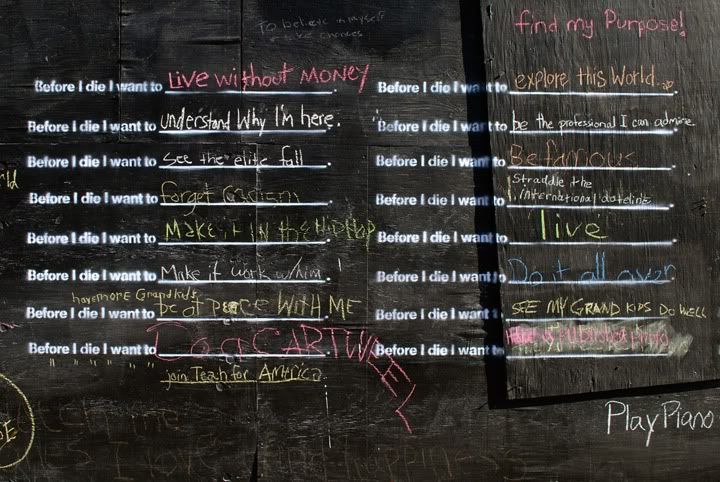 To believe in myself
take chances
find my Purpose!
Before I die I want to Live without MONEY.
Before I die I want to understand Why I'm here.
Before I die I want to see the elite fall.
Before I die I want to forget
Before I die I want to MAKE it IN the HIPHOP
Before I die I want to Make it work w/him!
have more Grandkids
Before I die I want to be at PEACE WITH ME
Before I die I want to Do a CARTWHEEL
" " " " " join Teach for AMERICA
Before I die I want to explore this World.
Before I die I want to be the professional I can admire.
Before I die I want to Be famous.
Straddle the
Before I die I want to international dateline.
Before I die I want to live.
Before I die I want to Do it all over.
Before I die I want to SEE MY GRAND KIDS DO WELL
Before I die I want to
Play Piano
I love